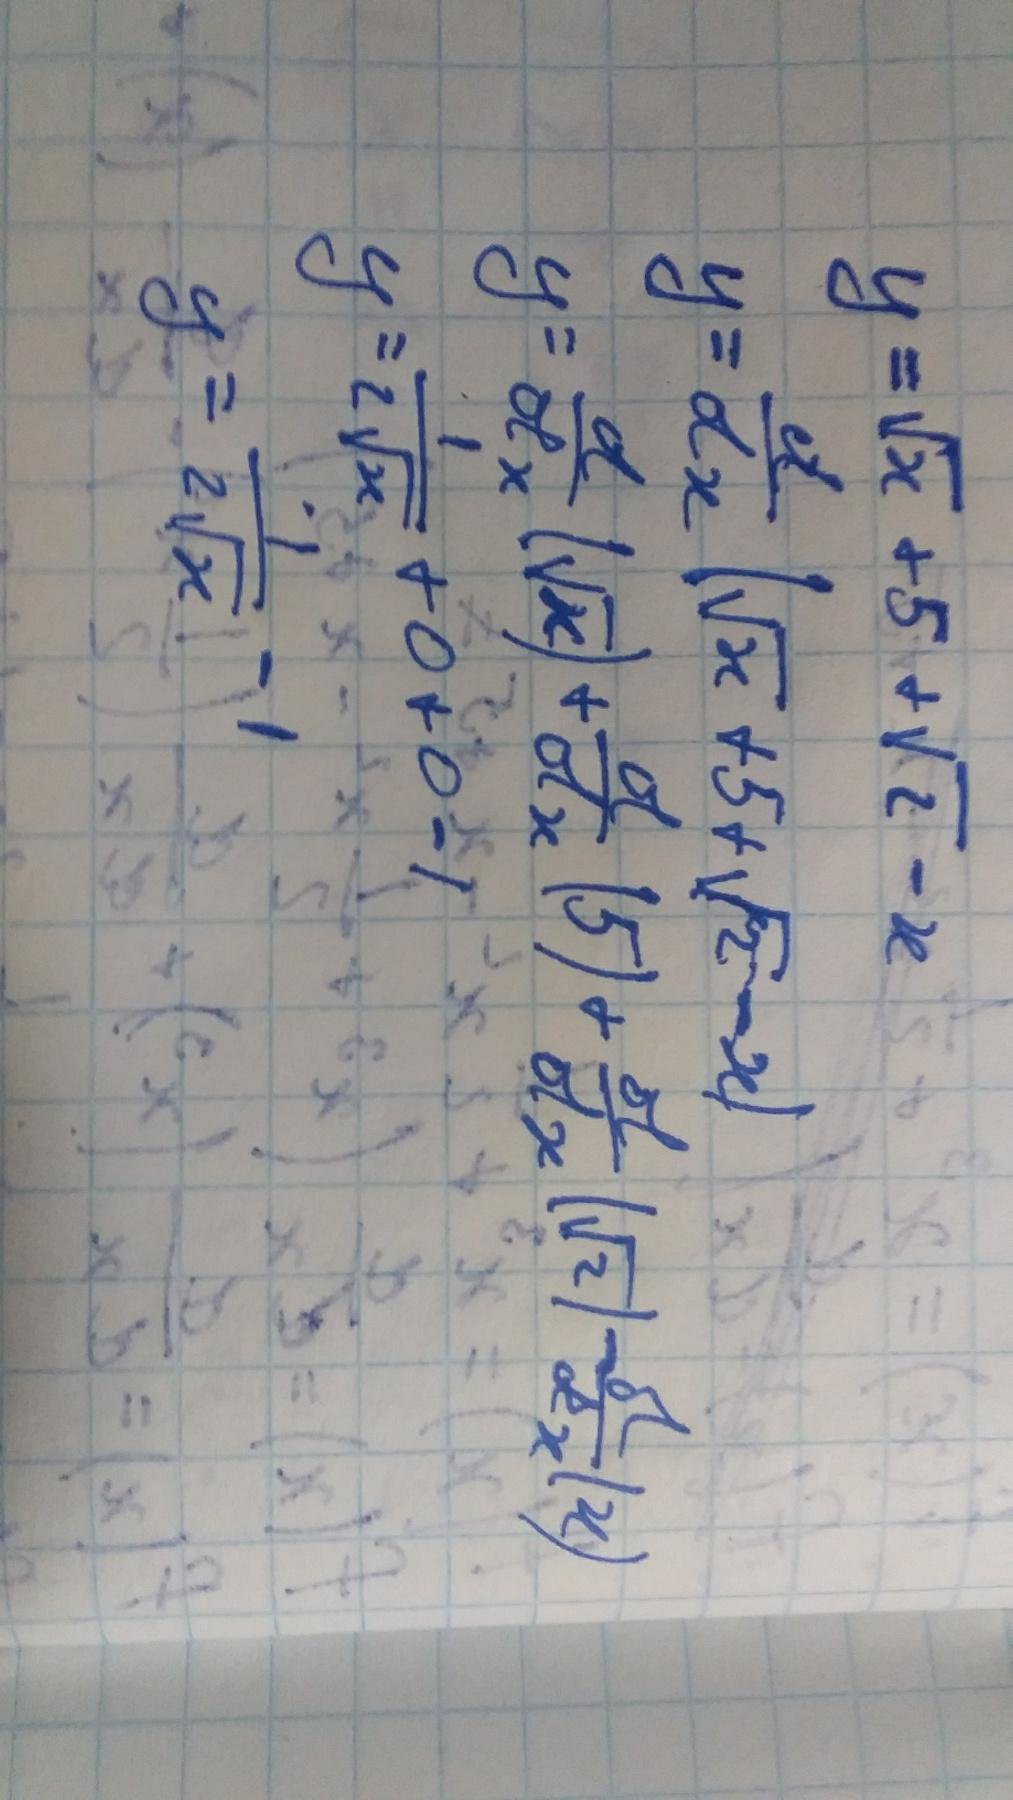 y = √x + 5 + √2 - x
y = d/dx (√x + 5 + √2 - x)
y = d/dx (√x) + d/dx (5) + d/dx (√2) - d/dx (x)
y = 1/2√x + 0 + 0 - 1
y = 1/2√x - 1